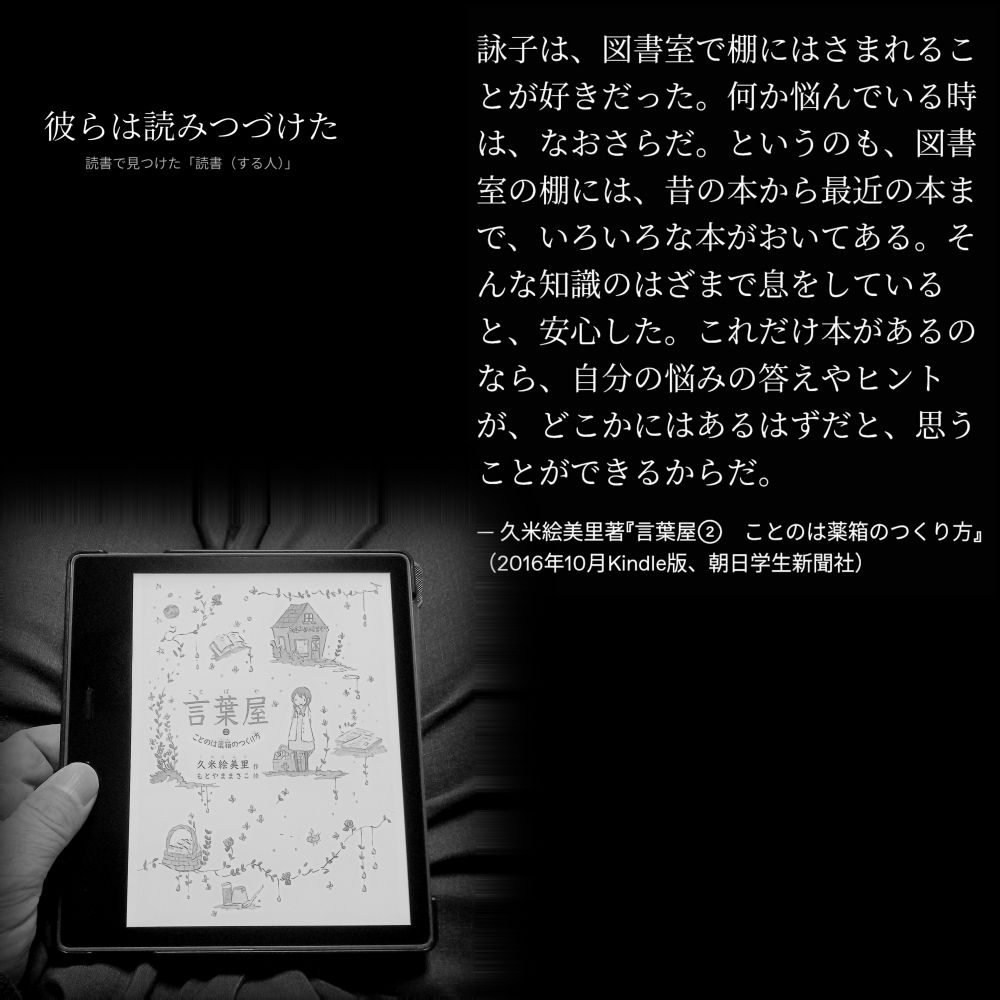 彼らは読みつづけた
読書で見つけた「読書（する人）」
詠子は、図書室で棚にはさまれるこ
とが好きだった。何か悩んでいる時
は、なおさらだ。というのも、図書
室の棚には、昔の本から最近の本ま
で、いろいろな本がおいてある。そ
んな知識のはざまで息をしている
と、安心した。これだけ本があるの
なら、自分の悩みの答えやヒント
が、どこかにはあるはずだと、思う
ことができるからだ。
— 久米絵美里著『言葉屋②　ことのは薬箱のつくり方』
（2016年10月Kindle版、朝日学生新聞社）
ことばや
言葉屋
②
ことのは薬箱のつくり方
久米絵美里 作
もとやままさこ 絵